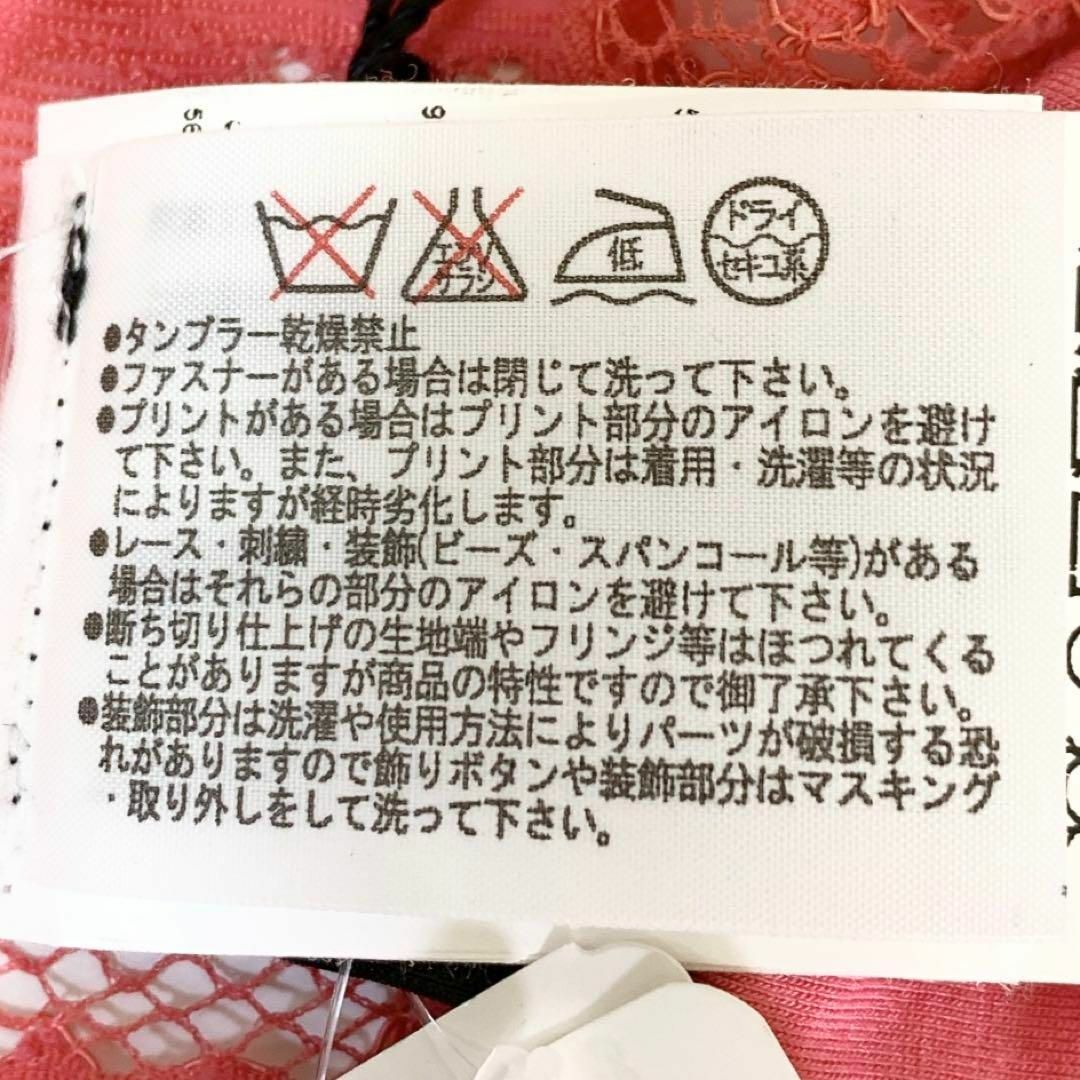 エンソ
サラシ
低
ドライ
セキユ系
●タンブラー乾燥禁止
●ファスナーがある場合は閉じて洗って下さい。
●プリントがある場合はプリント部分のアイロンを避け
て下さい。また、プリント部分は着用・洗濯等の状況
によりますが経時劣化します。
●レース・刺繍・装飾(ビーズ・スパンコール等)がある
場合はそれらの部分のアイロンを避けて下さい。
●断ち切り仕上げの生地端やフリンジ等はほつれてくる
ことがありますが商品の特性ですので御了承下さい。
●装飾部分は洗濯や使用方法によりパーツが破損する恐
れがありますので飾りボタンや装飾部分はマスキング
・取り外しをして洗って下さい。